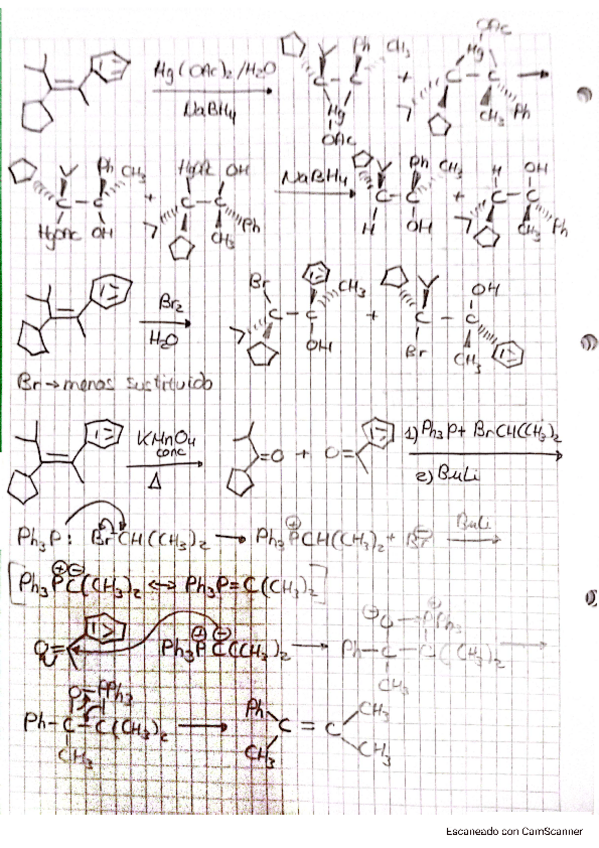 Hg(OAc)₂/H₂O
NaBH₄
Ph CH₃ + Hg OAc
C C Hg OAc
C C CH₃ Ph
Ph CH₃ HgOAc OH
C C + C C Ph
HgOAc OH CH₃
NaBH₄
Ph CH₃ H OH
C C + C C Ph
H OH CH₃
Br₂
H₂O
Br CH₃ OH
C C + C C
OH Br CH₃
Br → menos sustituido
KMnO₄
conc
Δ
=O + O=
1) Ph₃P + BrCH(CH₃)₂
2) BuLi
Ph₃P: Br-CH(CH₃)₂ → Ph₃P⊕CH(CH₃)₂ + Br⊖ BuLi →
[Ph₃P⊕C⊖(CH₃)₂ ↔ Ph₃P=C(CH₃)₂]
O= Ph₃P⊕C⊖(CH₃)₂ → Ph-C-C(CH₃)₂ →
⊖O ⊕PPh₃
CH₃
O-PPh₃
Ph-C-C(CH₃)₂ → Ph C=C CH₃
CH₃ CH₃ CH₃
Escaneado con CamScanner